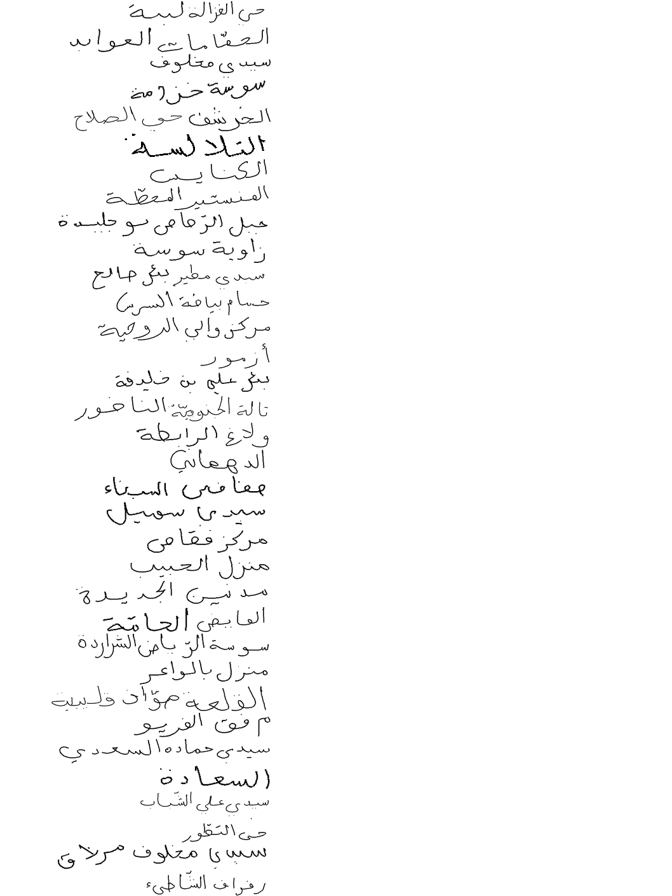 حي الغزالة لبية
الحقّامات العوابد
سيدي مخلوف
سوسة خزامة
الخرشف حي الصلاح
التلالسة
الكنايس
المنستير المحطّة
جبل الرّصاص بو جليدة
زاوية سوسة
سيدي مطير بئر صالح
حسام بياضة السرس
مركز والي الروحية
أزمور
بئر علي بن خليفة
تالة الجنوبيّة الناظور
ولاغ الرابطة
الدهماني
صفاقس الميناء
سيدي سهيل
مركز فقاص
منزل الحبيب
مدنين الجديدة
العايض الحامّة
سوسة الرّياض الشراردة
منزل بالواعر
القلعة صوّاف قليبية
م فق الفريو
سيدي حمادة السعدي
السعادة
سيدي علي الشباب
حي التطوّر
سيدي مخلوف مرناق
رفراف الشّاطىء